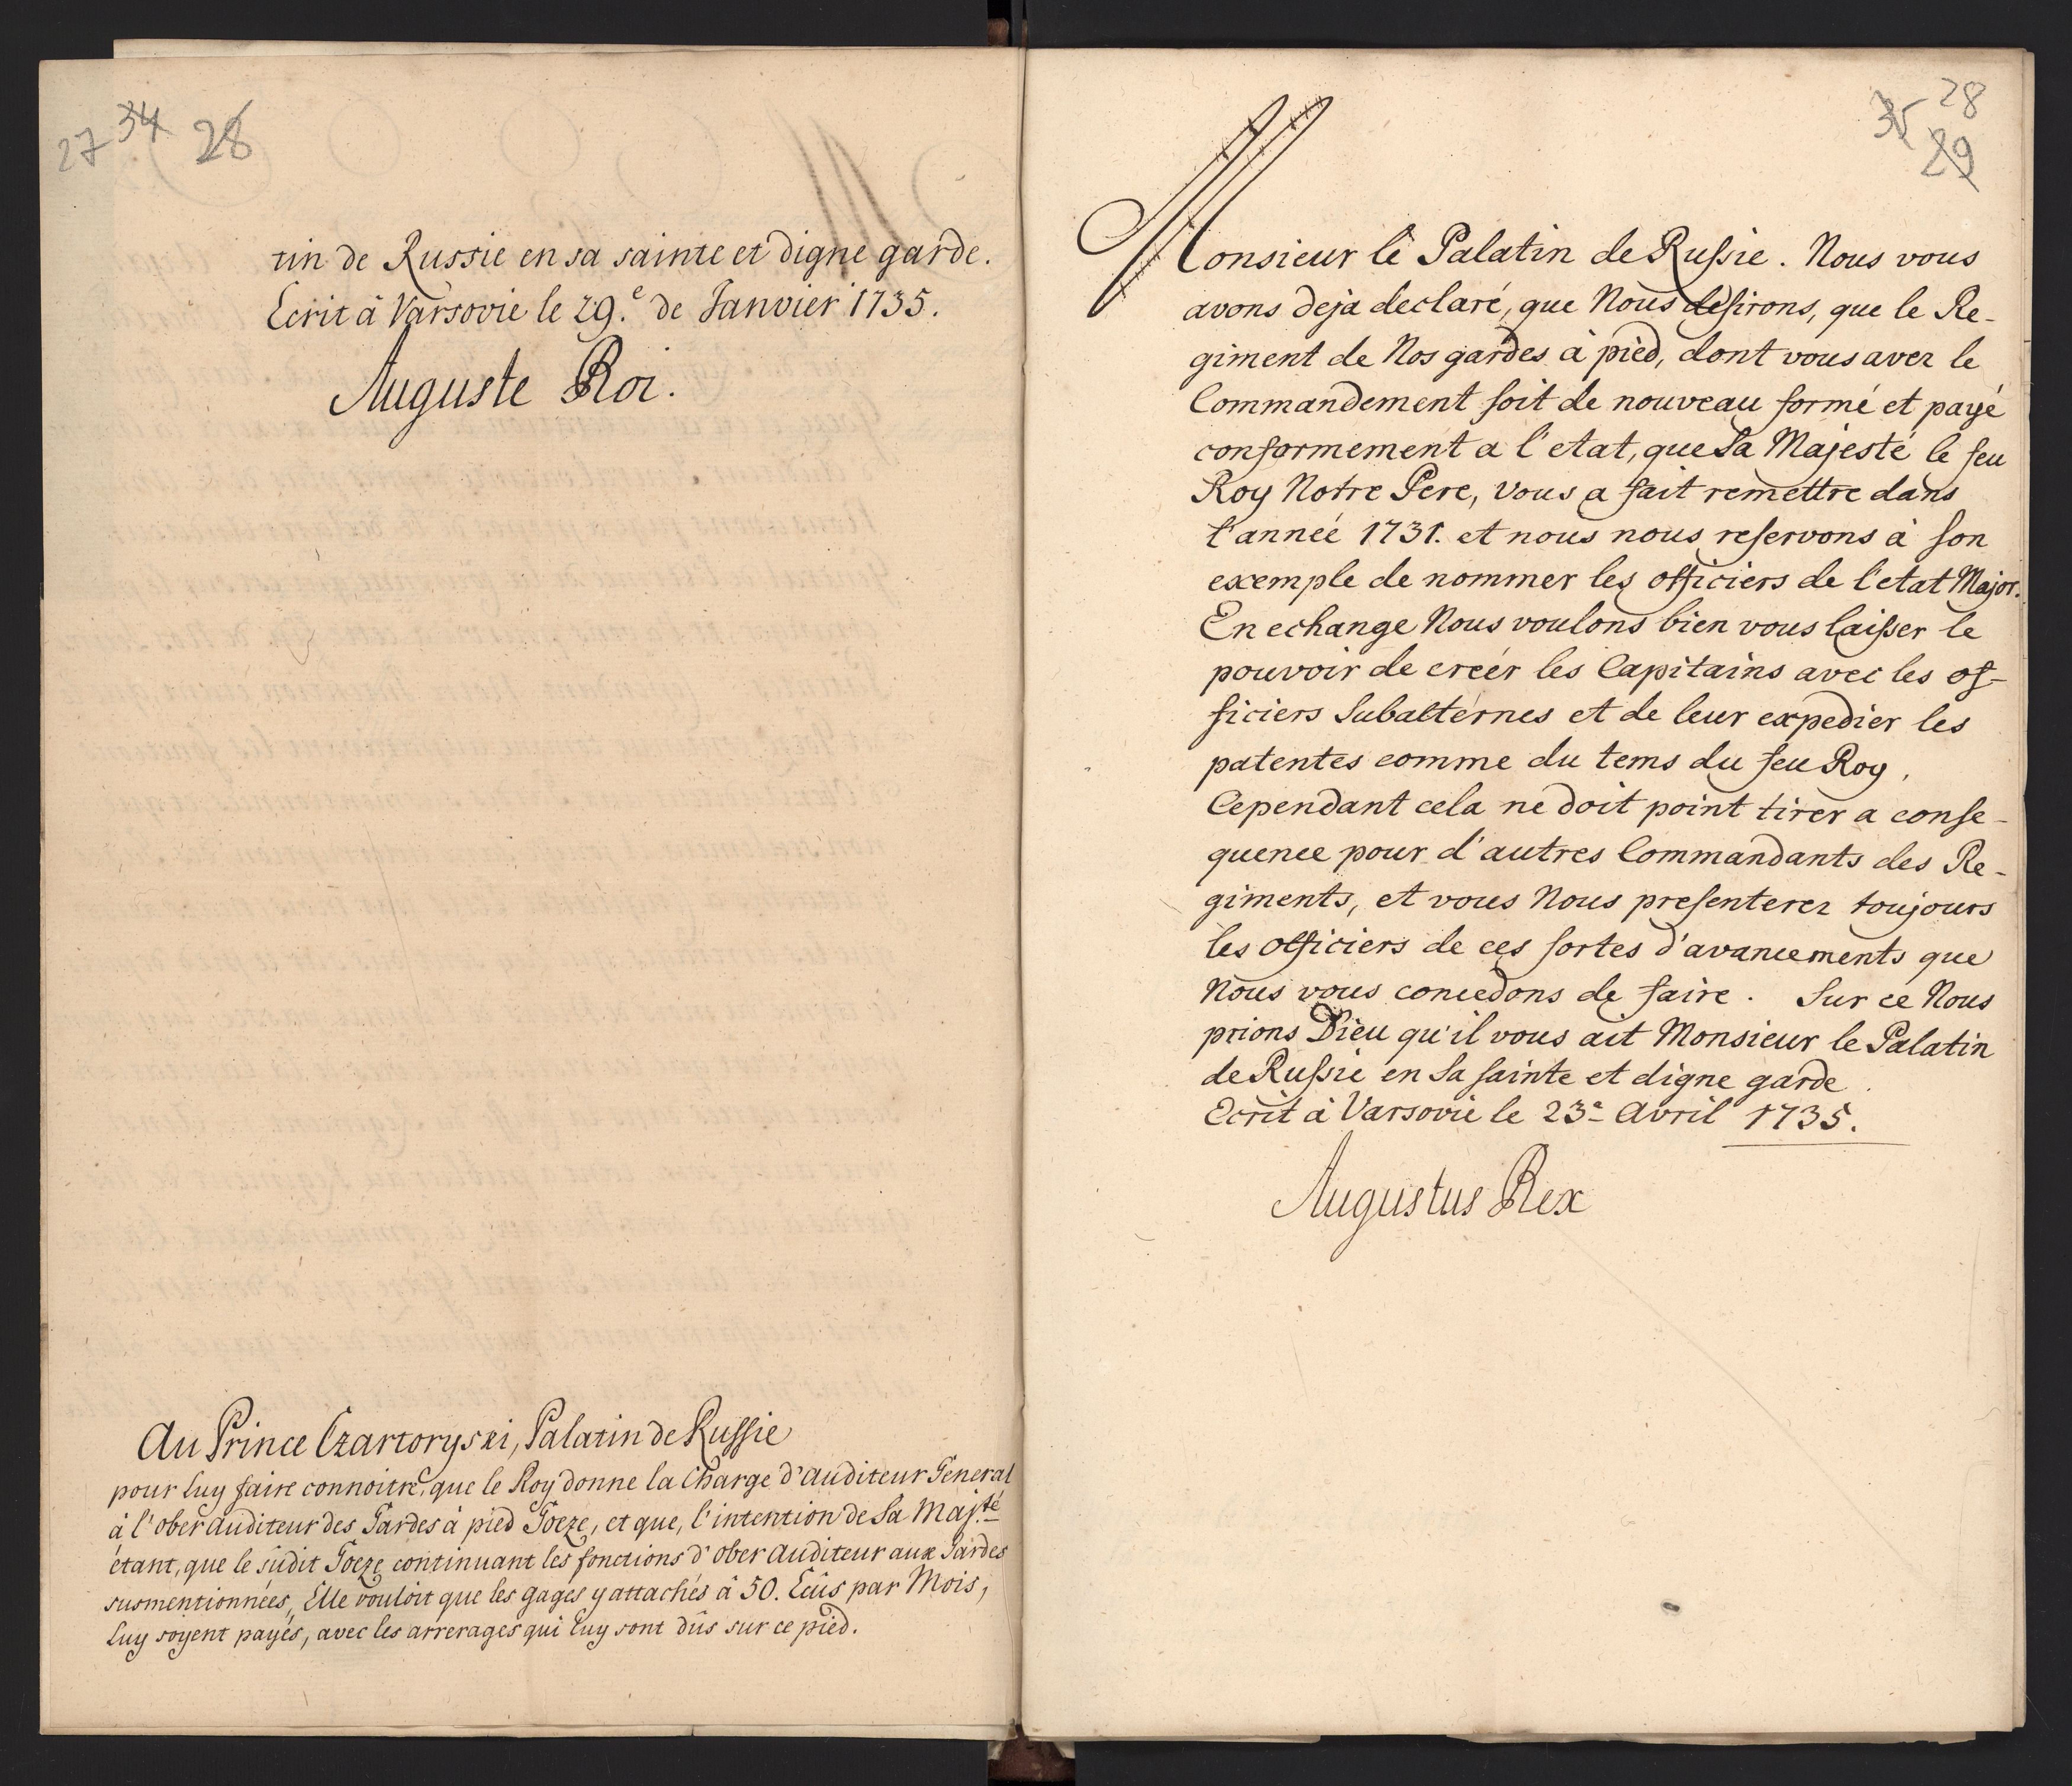 27 34 28
tin de Russie en sa sainte et digne garde.
Ecrit à Varsovie le 29.e de Janvier 1735.
Auguste Roi.
Au Prince Czartoryski, Palatin de Russie
pour luy faire connoitre, que le Roy donne la Charge d'Auditeur General
à l'Ober Auditeur des Gardes à pied Goeze, et que, l'intention de Sa Maj.té
étant, que le sûdit Goeze continuant les fonctions d'Ober Auditeur aux Gardes
susmentionnées, Elle vouloit que les gages y attachés à 50. Ecûs par Mois,
luy soyent payés, avec les arrerages qui luy sont dûs sur ce pied.
35 28
29
Monsieur le Palatin de Russie. Nous vous
avons deja declaré, que Nous desirons, que le Re-
giment de Nos gardes à pied, dont vous avez le
Commandement soit de nouveau formé et payé
conformement a l'etat, que Sa Majesté le feu
Roy Notre Pere, vous a fait remettre dans
l'année 1731. et nous nous reservons à son
exemple de nommer les officiers de l'etat Major.
En echange Nous voulons bien vous laisser le
pouvoir de creér les Capitains avec les of-
ficiers Subalternes et de leur expedier les
patentes comme du tems du feu Roy,
Cependant cela ne doit point tirer a conse-
quence pour d'autres Commandants des Re-
giments, et vous Nous presenterez toujours
les officiers de ces sortes d'avancements que
Nous vous concedons de faire. Sur ce Nous
prions Dieu qu'il vous ait Monsieur le Palatin
de Russie en Sa sainte et digne garde.
Ecrit à Varsovie le 23e Avril 1735.
Augustus Rex